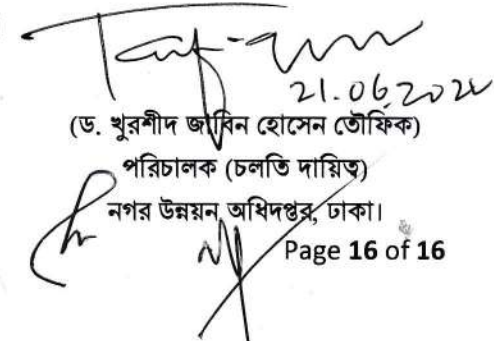 21.06.2020
(ড. খুরশীদ জাবিন হোসেন তৌফিক)
পরিচালক (চলতি দায়িত্ব)
নগর উন্নয়ন অধিদপ্তর, ঢাকা।
Page 16 of 16